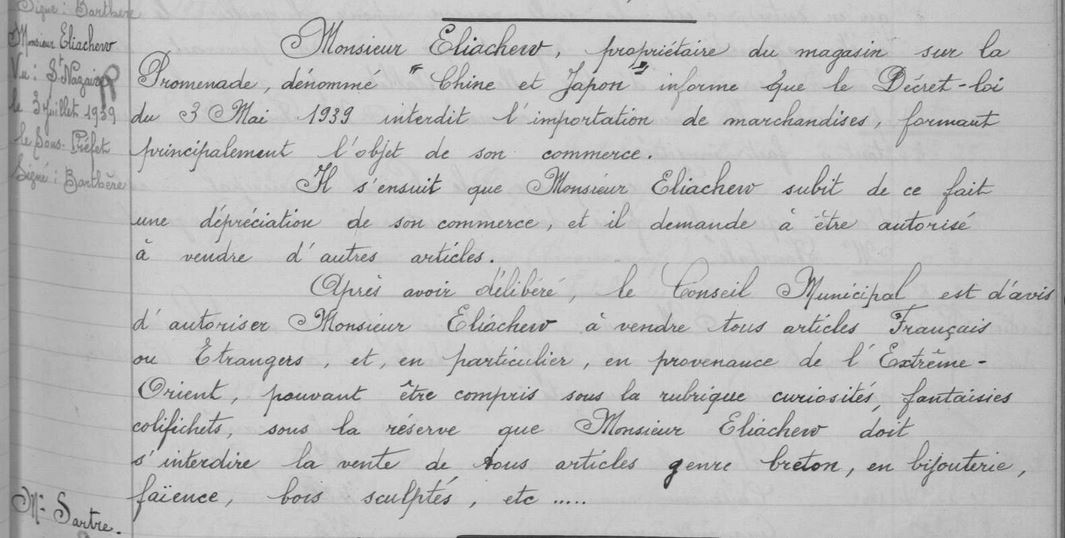 Signé : Barthère
Monsieur Eliachew
Vu : St Nazaire
le 3 Juillet 1939
le Sous-Préfet
Signé : Barthère
Monsieur Eliachew, propriétaire du magasin sur la
Promenade, dénommé " Chine et Japon " informe que le Décret-loi
du 3 Mai 1939 interdit l'importation de marchandises, formant
principalement l'objet de son commerce.
Il s'ensuit que Monsieur Eliachew subit de ce fait
une dépréciation de son commerce, et il demande à être autorisé
à vendre d'autres articles.
Après avoir délibéré, le Conseil Municipal est d'avis
d'autoriser Monsieur Eliachew à vendre tous articles Français
ou Etrangers, et, en particulier, en provenance de l'Extrême-
Orient, pouvant être compris sous la rubrique curiosités, fantaisies
colifichets, sous la réserve que Monsieur Eliachew doit
s'interdire la vente de tous articles genre breton, en bijouterie,
faïence, bois sculptés, etc .....
Mr Sartre.